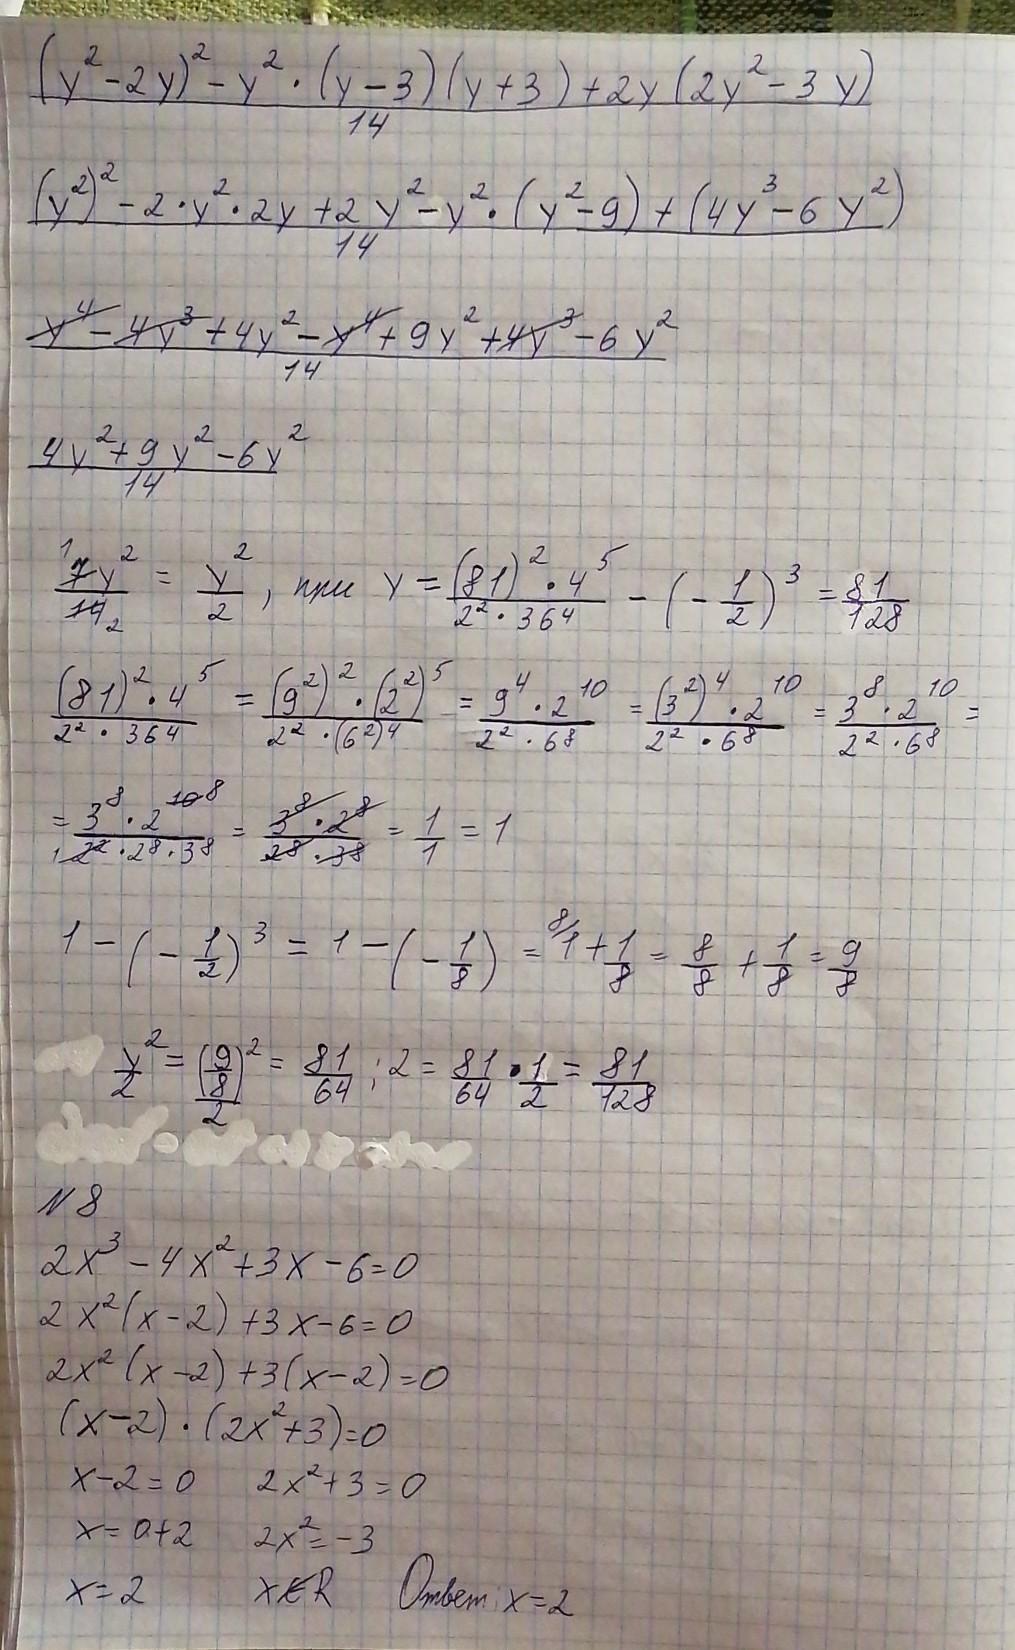 (y² - 2y)² - y² · (y - 3)(y + 3) + 2y(2y² - 3y) / 14
(y²)² - 2 · y² · 2y + 2y² - y² · (y² - 9) + (4y³ - 6y²) / 14
y⁴ - 4y³ + 4y² - y⁴ + 9y² + 4y³ - 6y² / 14
4y² + 9y² - 6y² / 14
7y²/14 = y²/2, при y = (81)² · 4⁵ / 2² · 36⁴ - (-1/2)³ = 81/128
(81)² · 4⁵ / 2² · 36⁴ = (9²)² · (2²)⁵ / 2² · (6²)⁴ = 9⁴ · 2¹⁰ / 2² · 6⁸ = (3²)⁴ · 2¹⁰ / 2² · 6⁸ = 3⁸ · 2¹⁰ / 2² · 6⁸ =
= 3⁸ · 2¹⁰ ⁸ / 2² · 2⁸ · 3⁸ = 3⁸ · 2⁸ / 2⁸ · 3⁸ = 1/1 = 1
1 - (-1/2)³ = 1 - (-1/8) = ⁸⁄1 + 1/8 = 8/8 + 1/8 = 9/8
y²/2 = (9/8)²/2 = 81/64 : 2 = 81/64 · 1/2 = 81/128
N8
2x³ - 4x² + 3x - 6 = 0
2x²(x - 2) + 3x - 6 = 0
2x²(x - 2) + 3(x - 2) = 0
(x - 2) · (2x² + 3) = 0
x - 2 = 0 2x² + 3 = 0
x = 0 + 2 2x² = -3
x = 2 x∉R Ответ: x = 2